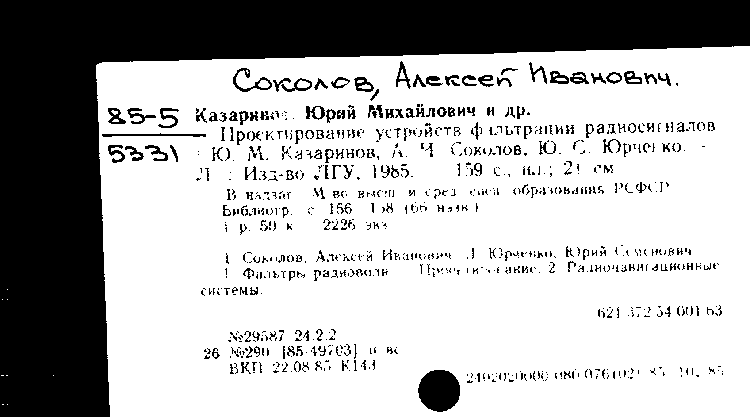 Соколов, Алексей Иванович.
85-5
5331
Казаринов, Юрий Михайлович и др.
Проектирование устройств фильтрации радиосигналов
/ Ю. М. Казаринов, А. И. Соколов, Ю. С. Юрченко. -
Л. : Изд-во ЛГУ, 1985. 159 с., ил.; 21 см
В надзаг. М-во высш. и сред. спец. образования РСФСР
Библиогр. с. 156-158 (66 назв.)
1 р. 50 к. 2226 экз.
1. Соколов, Алексей Иванович. Юрченко, Юрий Семенович
1. Фильтры радиоволн 2. Радионавигационные
системы.
621.372.54.001.63
№29587 24.2.2
26 №290 [85-49703] п во
ВКП 22.08.85 К143